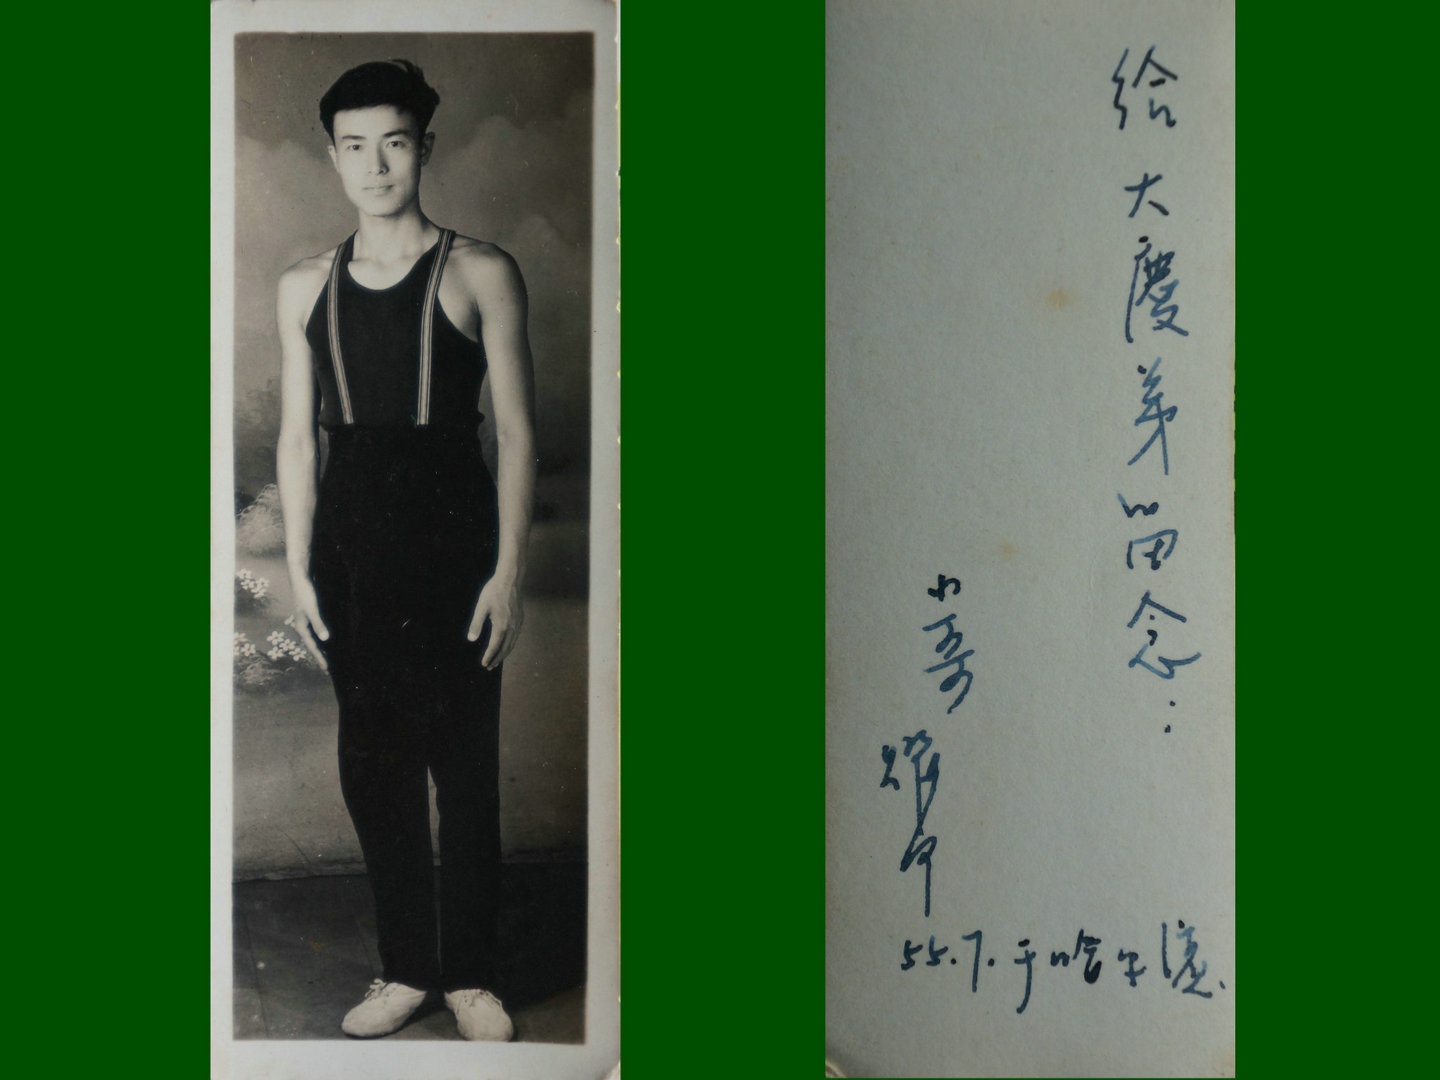 给大慶弟留念:
小哥
55.7.于哈尔滨.